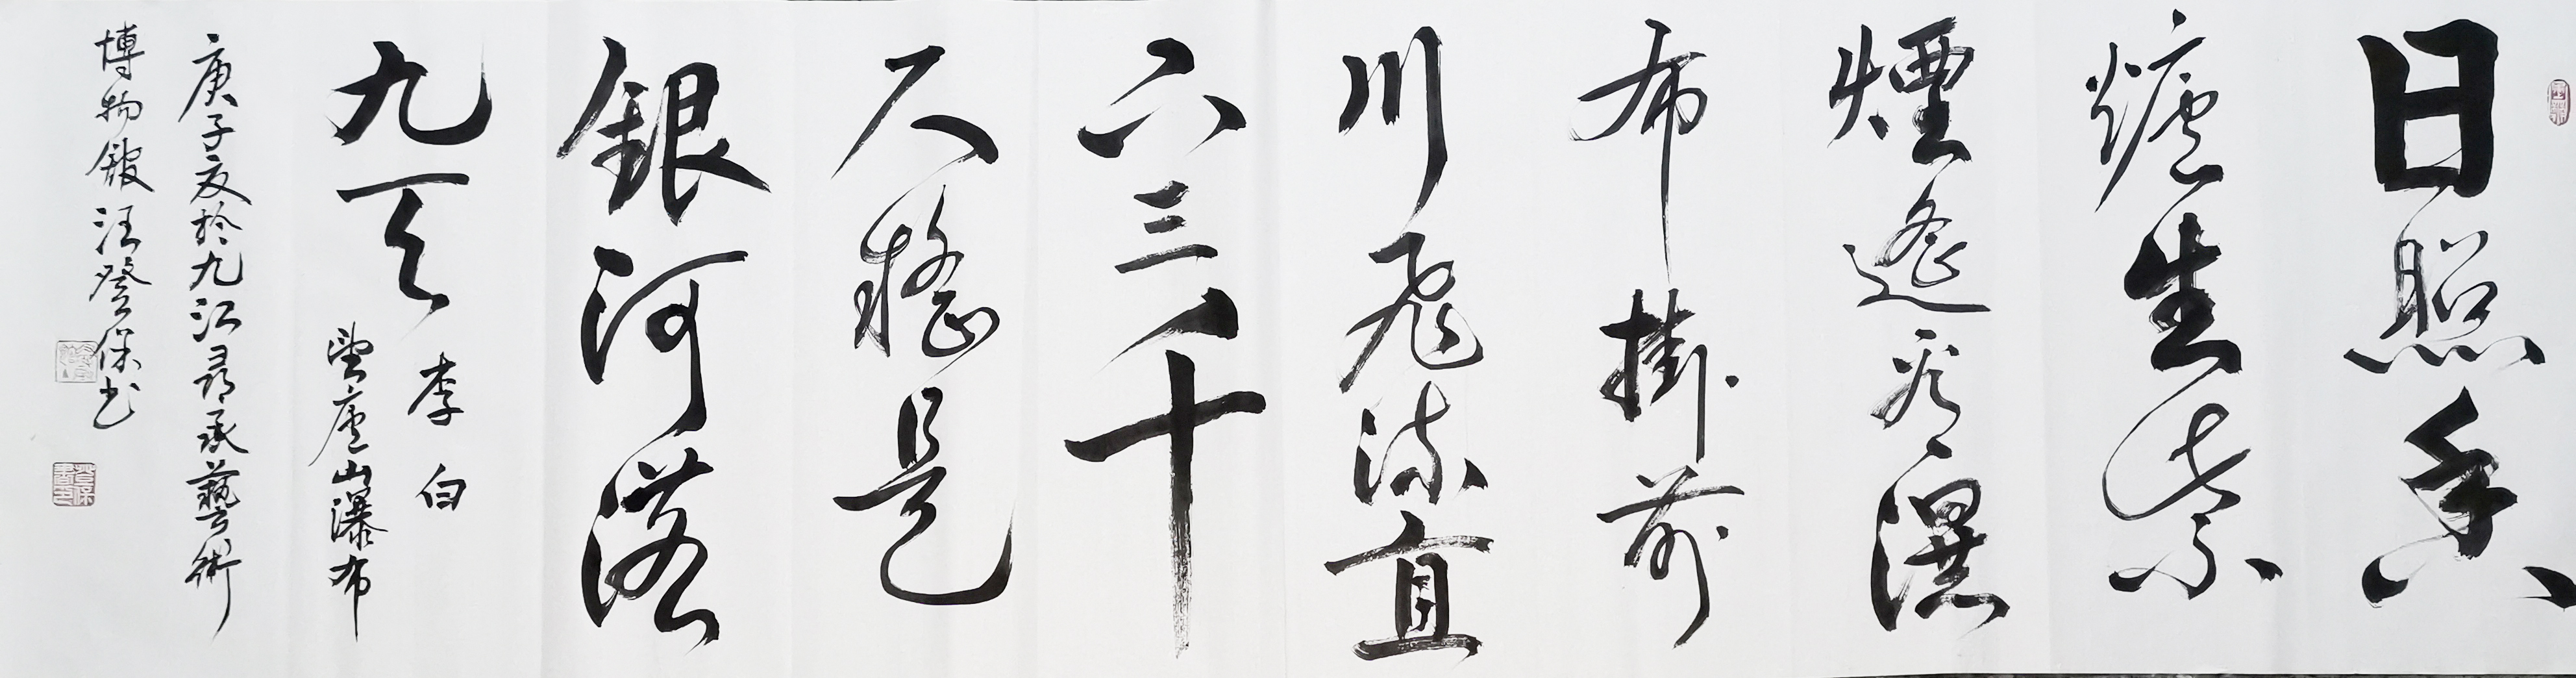 日照香
爐生紫
煙遙看瀑
布掛前
川飛流直
下三千
尺疑是
銀河落
九天
李白
望廬山瀑布
庚子夏於九江尋承藝術
博物館汪登保书